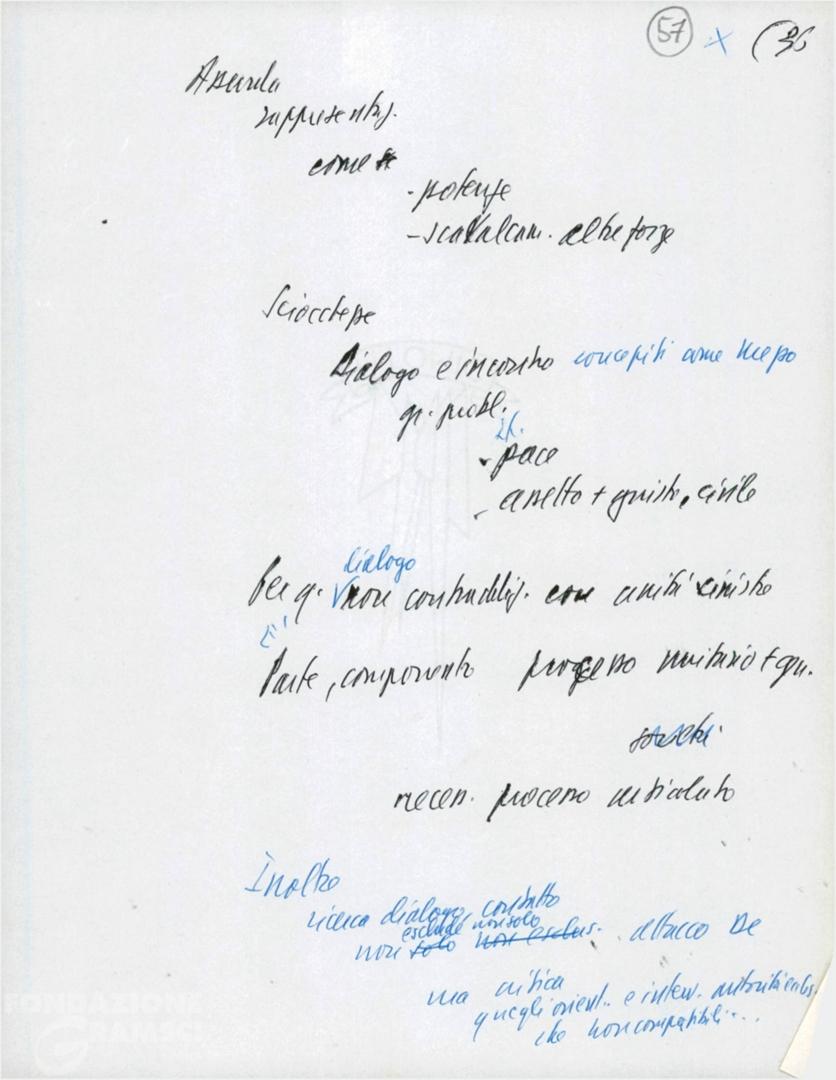 57 x (36
Assurda
rappresentaz.
come
- potenze
- scavalcam. altre forze
Sciocchezze
Dialogo e incontro concepiti come
gr. probl.
- pace
- assetto + giusto, civile
dialogo
Per q. non contraddiz. con unità sinistre
È
Parte, componente processo unitario + gen.
società
necess. processo articolato
Inoltre
ricerca dialogo, contatto
esclude non solo
non solo non esclus. attacco DC
ma critica
quegli orient. e interv.
che non compatibili...
FONDAZIONE
GRAMSCI